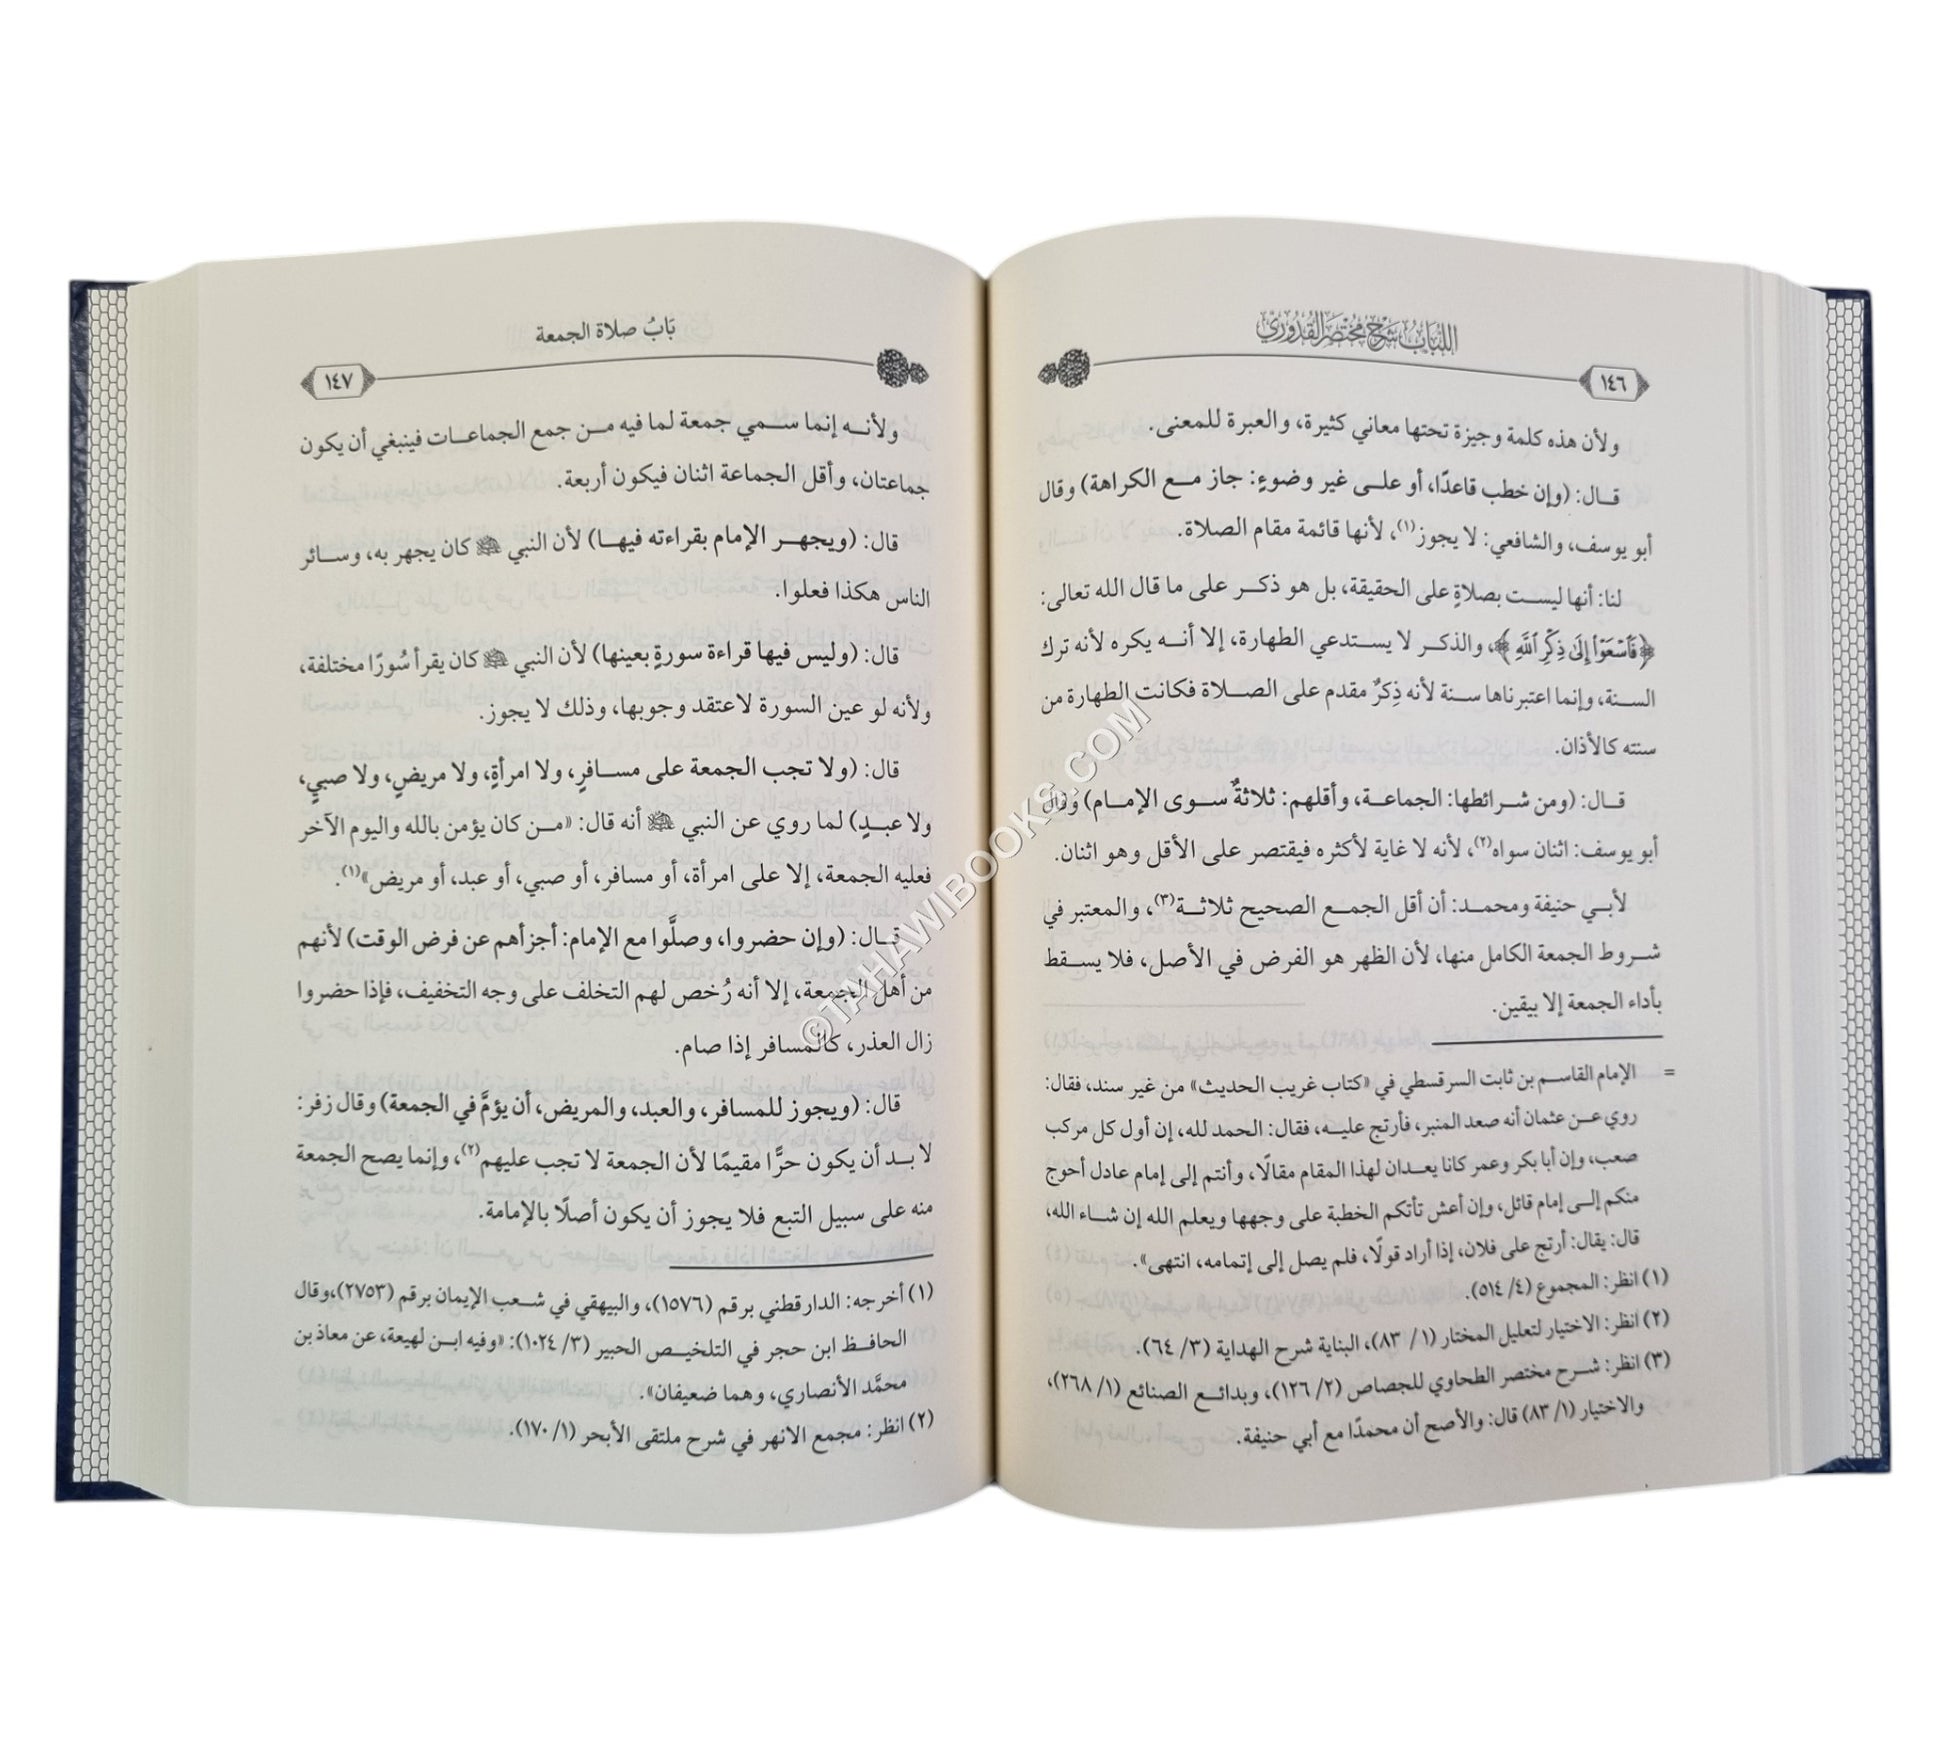 اللباب شرح مختصر القدوري
١٤٦
ولأن هذه كلمة وجيزة تحتها معاني كثيرة، والعبرة للمعنى.
قال: (وإن خطب قاعدًا، أو على غير وضوءٍ: جاز مع الكراهة) وقال
أبو يوسف، والشافعي: لا يجوز(١)، لأنها قائمة مقام الصلاة.
لنا: أنها ليست بصلاةٍ على الحقيقة، بل هو ذكر على ما قال الله تعالى:
﴿فَٱسْعَوْا۟ إِلَىٰ ذِكْرِ ٱللَّهِ﴾، والذكر لا يستدعي الطهارة، إلا أنه يكره لأنه ترك
السنة، وإنما اعتبرناها سنة لأنه ذِكرٌ مقدم على الصلاة فكانت الطهارة من
سنته كالأذان.
قال: (ومن شرائطها: الجماعة، وأقلهم: ثلاثةٌ سوى الإمام) وقال
أبو يوسف: اثنان سواه(٢)، لأنه لا غاية لأكثره فيقتصر على الأقل وهو اثنان.
لأبي حنيفة ومحمد: أن أقل الجمع الصحيح ثلاثة(٣)، والمعتبر في
شروط الجمعة الكامل منها، لأن الظهر هو الفرض في الأصل، فلا يسقط
بأداء الجمعة إلا بيقين.
= الإمام القاسم بن ثابت السرقسطي في «كتاب غريب الحديث» من غير سند، فقال:
روي عن عثمان أنه صعد المنبر، فأرتج عليه، فقال: الحمد لله، إن أول كل مركب
صعب، وإن أبا بكر وعمر كانا يعدان لهذا المقام مقالًا، وأنتم إلى إمام عادل أحوج
منكم إلى إمام قائل، وإن أعش تأتكم الخطبة على وجهها ويعلم الله إن شاء الله،
قال: يقال: أرتج على فلان، إذا أراد قولًا، فلم يصل إلى إتمامه، انتهى».
(١) انظر: المجموع (٤/ ٥١٤).
(٢) انظر: الاختيار لتعليل المختار (١/ ٨٣)، البناية شرح الهداية (٣/ ٦٤).
(٣) انظر: شرح مختصر الطحاوي للجصاص (٢/ ١٢٦)، وبدائع الصنائع (١/ ٢٦٨)،
والاختيار (١/ ٨٣) قال: والأصح أن محمدًا مع أبي حنيفة.
بَابُ صلاة الجمعة
١٤٧
ولأنه إنما سمي جمعة لما فيه من جمع الجماعات فينبغي أن يكون
جماعتان، وأقل الجماعة اثنان فيكون أربعة.
قال: (ويجهر الإمام بقراءته فيها) لأن النبي ﷺ كان يجهر به، وسائر
الناس هكذا فعلوا.
قال: (وليس فيها قراءة سورةٍ بعينها) لأن النبي ﷺ كان يقرأ سُورًا مختلفة،
ولأنه لو عين السورة لاعتقد وجوبها، وذلك لا يجوز.
قال: (ولا تجب الجمعة على مسافرٍ، ولا امرأةٍ، ولا مريضٍ، ولا صبيٍ،
ولا عبدٍ) لما روي عن النبي ﷺ أنه قال: «من كان يؤمن بالله واليوم الآخر
فعليه الجمعة، إلا على امرأة، أو مسافر، أو صبي، أو عبد، أو مريض»(١).
قال: (وإن حضروا، وصلَّوا مع الإمام: أجزأهم عن فرض الوقت) لأنهم
من أهل الجمعة، إلا أنه رُخص لهم التخلف على وجه التخفيف، فإذا حضروا
زال العذر، كالمسافر إذا صام.
قال: (ويجوز للمسافر، والعبد، والمريض، أن يؤمَّ في الجمعة) وقال زفر:
لا بد أن يكون حرًّا مقيمًا لأن الجمعة لا تجب عليهم(٢)، وإنما يصح الجمعة
منه على سبيل التبع فلا يجوز أن يكون أصلًا بالإمامة.
(١) أخرجه: الدارقطني برقم (١٥٧٦)، والبيهقي في شعب الإيمان برقم (٢٧٥٣)،وقال
الحافظ ابن حجر في التلخيص الحبير (٣/ ١٠٢٤): «وفيه ابن لهيعة، عن معاذ بن
محمَّد الأنصاري، وهما ضعيفان».
(٢) انظر: مجمع الانهر في شرح ملتقى الأبحر (١/ ١٧٠).
©TAHAWIBOOKS.COM